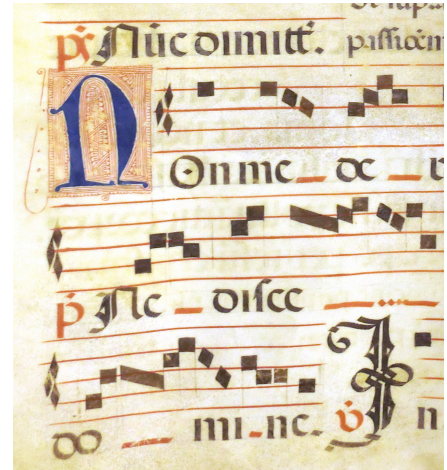 ps Nūc dimitt̄. passiōem
Non me _ de _
p̄ Ne _ disce _
do _ mi _ ne. v̄ In